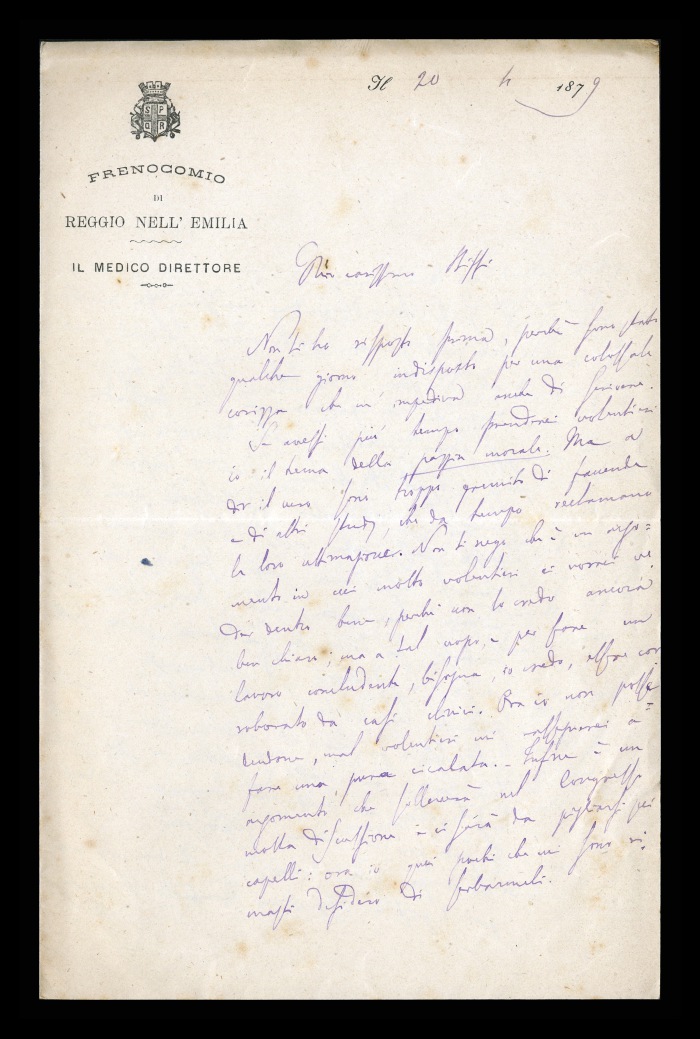 Il 20 4 1879
S P
Q R
FRENOCOMIO
DI
REGGIO NELL' EMILIA
IL MEDICO DIRETTORE
carissimo Biffi
Non ti ho risposto prima, perchè sono stato
qualche giorno indisposto per una colossale
corizza che m' impediva anche di scrivere.
Se avessi più tempo prenderei volentieri
io il tema della pazzia morale. Ma a
dir il vero sono troppo gremito di faccende
e di altri studj, che da tempo reclamano
la loro ultimazione. Non ti nego che è un argo=
mento in cui molto volentieri ci vorrei ve
der dentro bene, perchè non lo credo ancora
ben chiaro; ma a tal uopo, e per fare un
lavoro concludente, bisogna, io credo, esser cor
roborato da casi clinici. Ora io non posse
dendone, mal volentieri mi a=
fare una pura cicalata. - Infine è un
argomento che solleverà nel Congresso
molta discussione e ci sarà da pigliarsi pei
capelli: ora io quei pochi che mi sono ri=
masti desidero di serbarmeli.